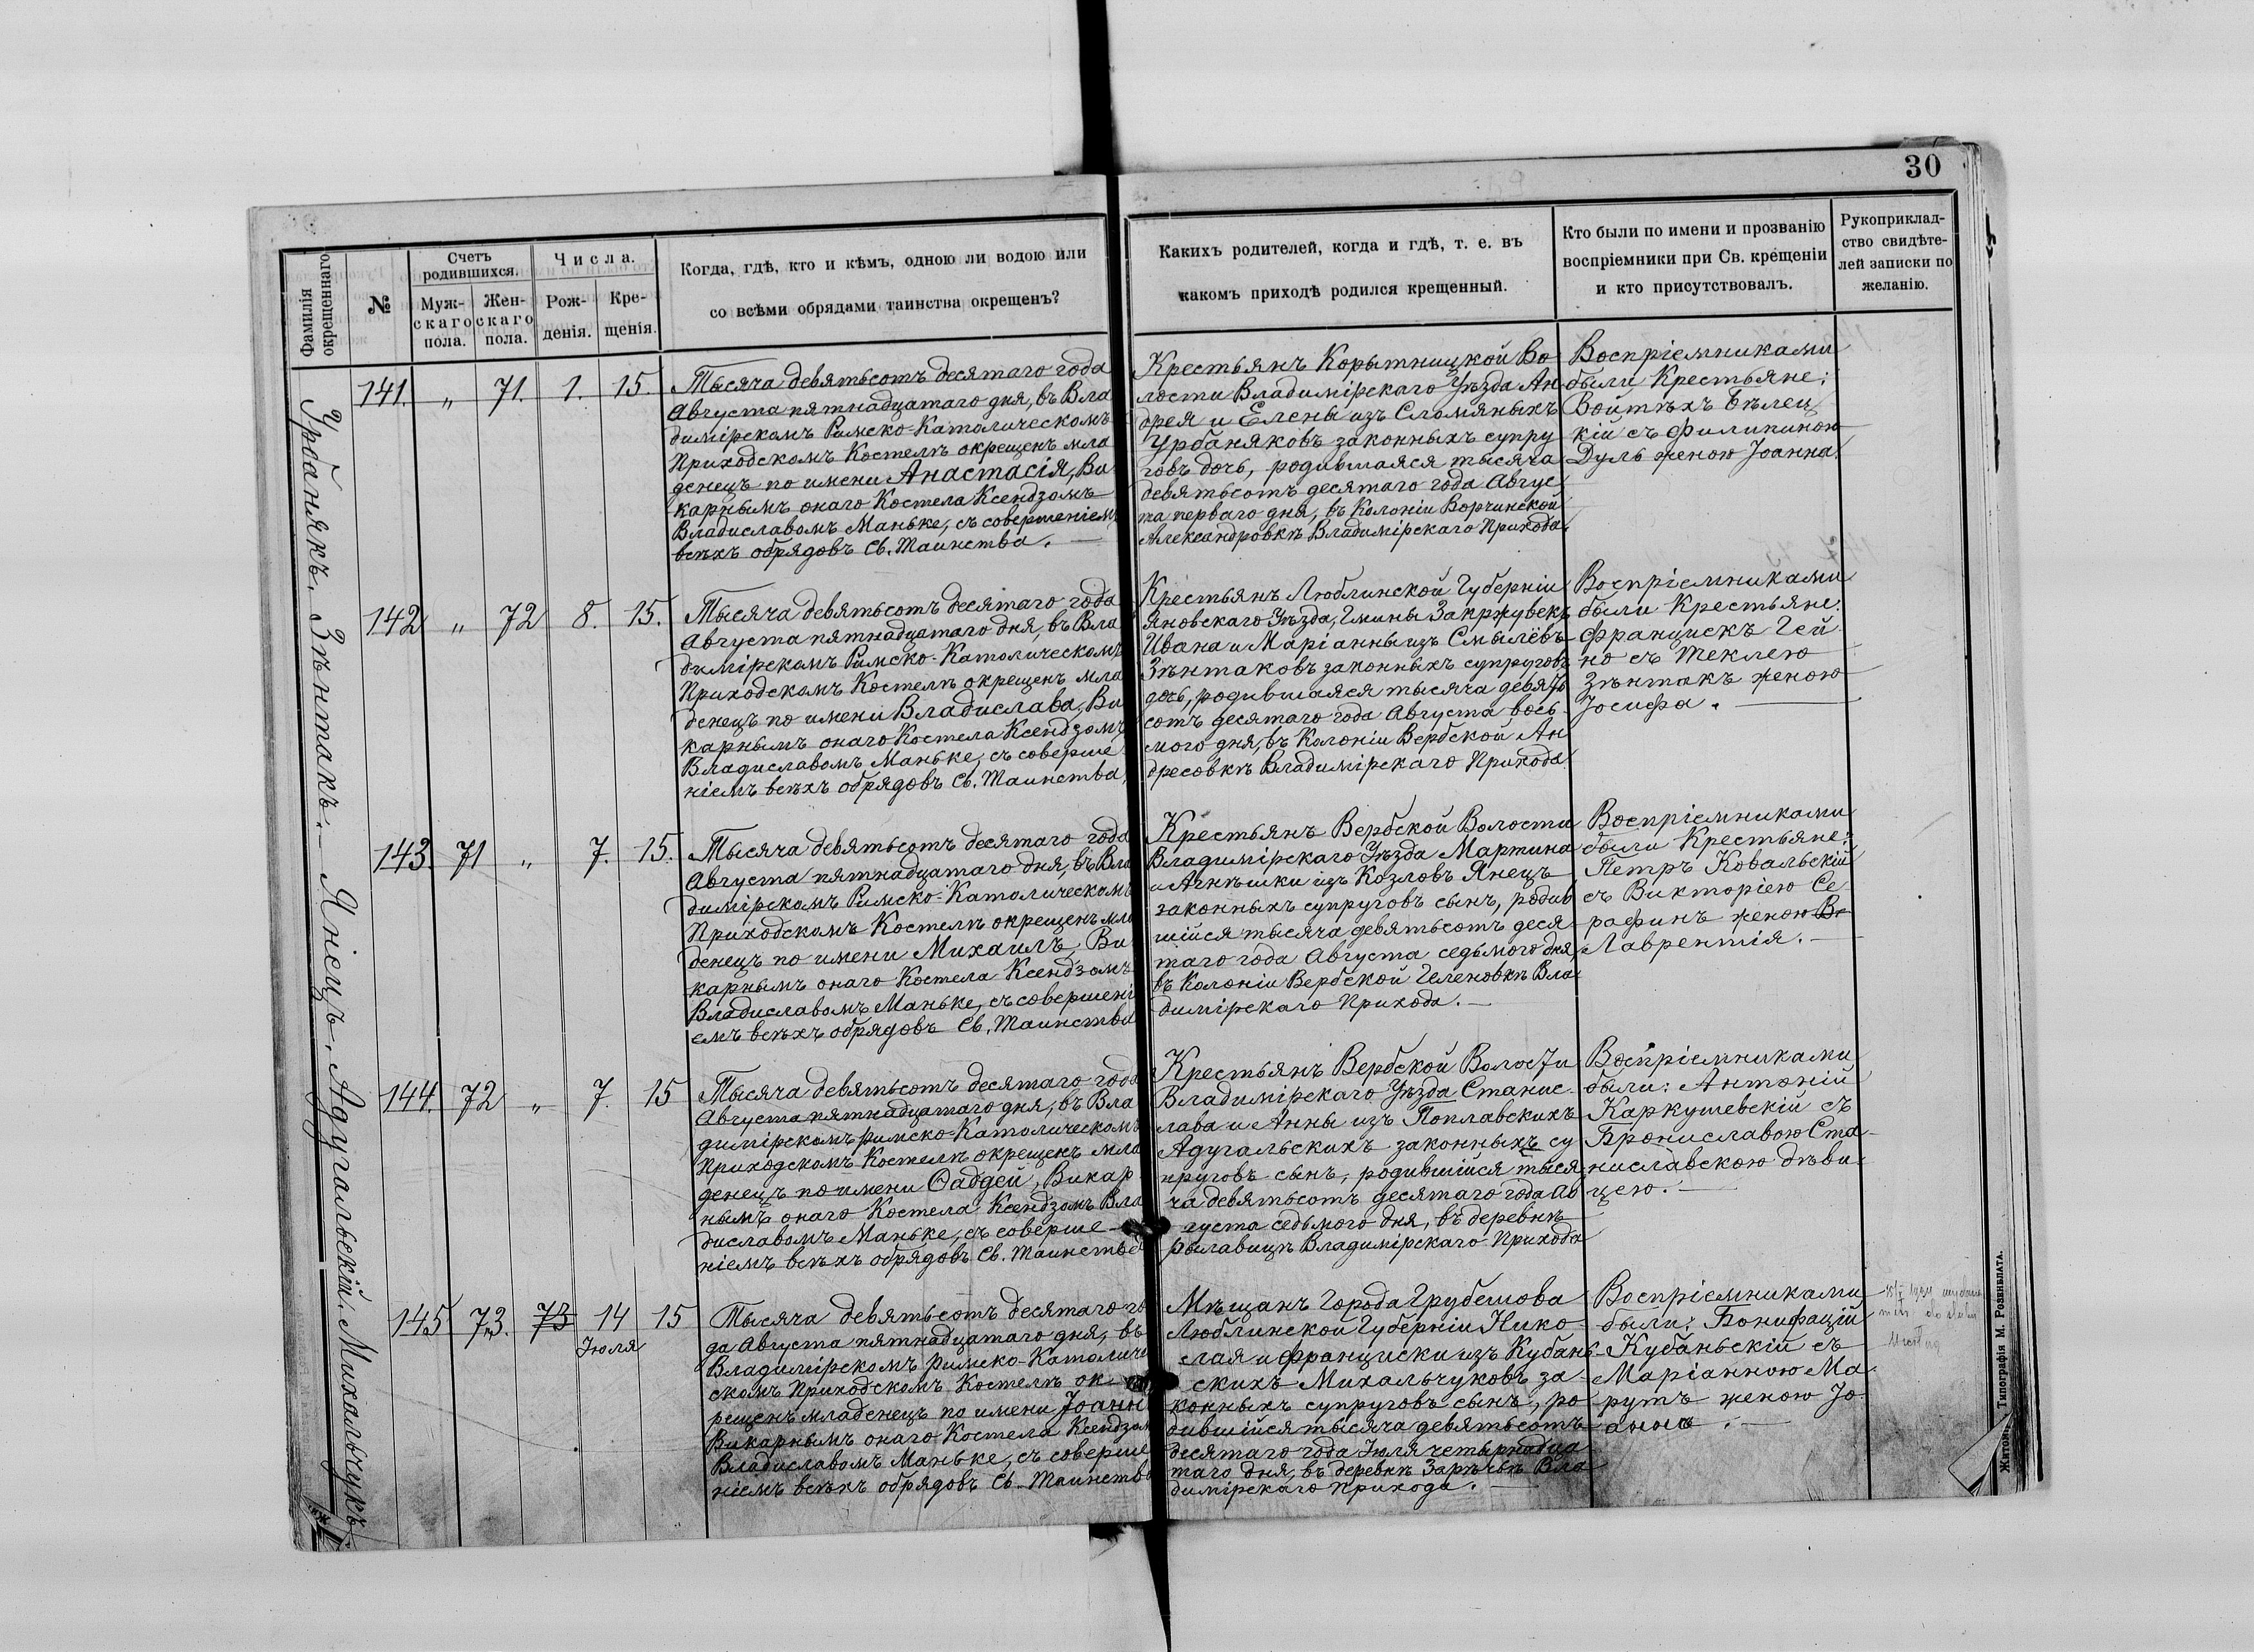 30
Фамилія окрещеннаго
№
Счетъ родившихся.
Муж-
скаго
пола.
Жен-
скаго
пола.
Числа.
Рож-
денія.
Кре-
щенія.
Когда, гдѣ, кто и кѣмъ, одною ли водою или
со всѣми обрядами таинства окрещенъ?
Какихъ родителей, когда и гдѣ, т. е. въ
какомъ приходѣ родился крещенный.
Кто были по имени и прозванію
воспріемники при Св. крещеніи
и кто присутствовалъ.
Рукоприклад-
ство свидѣте-
лей записки по
желанію.
Урбанякъ. Зѣнтакъ. Янецъ. Адугальскій. Михальчукъ
141. " 71. 1. 15.
Тысяча девятьсотъ десятаго года
Августа пятнадцатаго дня, въ Вла
димірскомъ Римско-Католическомъ
Приходскомъ Костелѣ окрещенъ мла
денецъ по имени Анастасія, Ви
карнымъ онаго Костела Ксендзомъ
Владиславомъ Маньке, съ совершеніемъ
всѣхъ обрядовъ Св. Таинства.
Крестьянъ Корытницкой Во
лости Владимірскаго Уѣзда Ан
дрея и Елены изъ Сломяныхъ
Урбаняковъ законныхъ супру
говъ дочь, родившаяся тысяча
девятьсотъ десятаго года Авгус
та перваго дня, въ Колоніи Ворчинской
Александровкѣ Владимірскаго Прихода.
Воспріемниками
были Крестьяне:
Войтѣхъ Бѣлец
кій съ Филипиною
Дуль женою Іоанна.
142 " 72 8. 15.
Тысяча девятьсотъ десятаго года
Августа пятнадцатаго дня, въ Вла
димірскомъ Римско-Католическомъ
Приходскомъ Костелѣ окрещенъ мла
денецъ по имени Владислава, Ви
карнымъ онаго Костела Ксендзомъ
Владиславомъ Маньке, съ соверше
ніемъ всѣхъ обрядовъ Св. Таинства.
Крестьянъ Люблинской Губерніи
Яновскаго Уѣзда, Гмины Закржувекъ
Ивана и Маріанны изъ Смылёвъ
Зѣнтаковъ законныхъ супруговъ
дочь, родившаяся тысяча девять
сотъ десятаго года Августа вось
мого дня, въ Колоніи Вербской Ан
дресовкѣ Владимірскаго Прихода.
Воспріемниками
были Крестьяне:
Францискъ Гей
но съ Теклею
Зѣнтакъ женою
Іосифа.
143. 71 " 7. 15.
Тысяча девятьсотъ десятаго года
Августа пятнадцатаго дня, въ Вла
димірскомъ Римско-Католическомъ
Приходскомъ Костелѣ окрещенъ мла
денецъ по имени Михаилъ, Ви
карнымъ онаго Костела Ксендзомъ
Владиславомъ Маньке, съ совершені
емъ всѣхъ обрядовъ Св. Таинства
Крестьянъ Вербской Волости
Владимірскаго Уѣзда Мартина
и Агнѣшки изъ Козловъ Янецъ
законныхъ супруговъ сынъ, родив
шійся тысяча девятьсотъ деся
таго года Августа седьмого дня,
въ Колоніи Вербской Геленовкѣ Вла
димірскаго Прихода.
Воспріемниками
были Крестьяне:
Петръ Ковальскій
съ Викторіею Се
рафинъ женою Ве
Лаврентія.
144. 72 " 7. 15
Тысяча девятьсотъ десятаго года
Августа пятнадцатаго дня, въ Вла
димірскомъ Римско-Католическомъ
Приходскомъ Костелѣ окрещенъ мла
денецъ по имени Ѳаддей, Викар
нымъ онаго Костела Ксендзомъ Вла
диславомъ Маньке, съ соверше
ніемъ всѣхъ обрядовъ Св. Таинства
Крестьянъ Вербской Волости
Владимірскаго Уѣзда Станис
лава и Анны изъ Поплавскихъ
Адугальскихъ законныхъ су
пруговъ сынъ, родившійся тыся
ча девятьсотъ десятаго года Ав
густа седьмого дня, въ деревнѣ
Рылавицѣ Владимірскаго Прихода
Воспріемниками
были: Антоній
Каркушевскій съ
Брониславою Ста
ниславскою дѣви
цею.
145 73. 73 14 15
Іюля
Тысяча девятьсотъ десятаго го
да Августа пятнадцатаго дня, въ
Владимірскомъ Римско-Католиче
скомъ Приходскомъ Костелѣ ок
рещенъ младенецъ по имени Іоаннъ
Викарнымъ онаго Костела Ксендзомъ
Владиславомъ Маньке, съ соверше
ніемъ всѣхъ обрядовъ Св. Таинства
Мѣщанъ Города Грубешова
Люблинской Губерніи Нико
лая и Франциски изъ Кубань
скихъ Михальчуковъ за
конныхъ супруговъ сынъ, ро
дившійся тысяча девятьсотъ
десятаго года Іюля четырнадца
таго дня, въ деревнѣ Зарѣчьѣ Вла
димірскаго Прихода.
Воспріемниками
были: Бонифацій
Кубаньскій съ
Маріанною Ма
рутъ женою Іо
анна.
Типографія М. Розенблата.